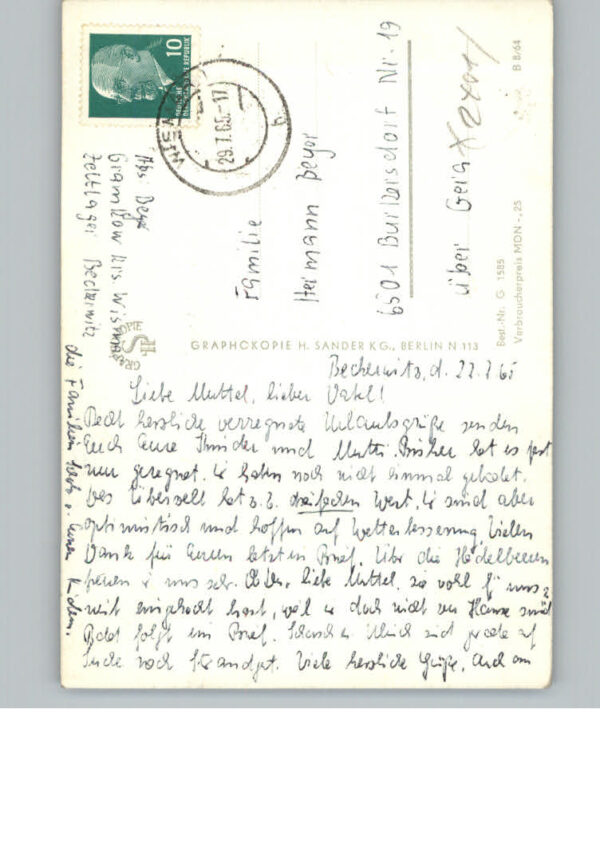 10
DEUTSCHE
DEMOKRATISCHE REPUBLIK
29.7.65.-17
b
Abs. Beyer
Gramkow Krs. Wismar
Zeltlager Beckerwitz
Familie
Hermann Beyer
6501 Burkersdorf Nr. 19
über Gera
B 8/64
Best.-Nr. G 1585
Verbraucherpreis MDN -,25
GRAPHOKOPIE H. SANDER KG., BERLIN N 113
Beckerwitz, d. 27.7.65
Liebe Muttel, lieber Vatel!
Recht herzliche verregnete Urlaubsgrüße senden
Euch Eure Kinder und Mutti. Bisher hat es fast
nur geregnet. Wir haben noch nicht einmal gebadet.
Das Überzelt hat z.B. dreifachen Wert. Wir sind aber
optimistisch und hoffen auf Wetterbesserung. Vielen
Dank für Euren letzten Brief. Über die Heidelbeeren
freuen wir uns sehr. liebe Muttel, voll für uns
mit eingekocht hast, weil wir doch nicht zu Hause sind
Bald folgt ein Brief. Ulrich sind gerade auf
Suche nach Strandgut. Viele herzliche Grüße, auch an
die Familien Eure Kinder.